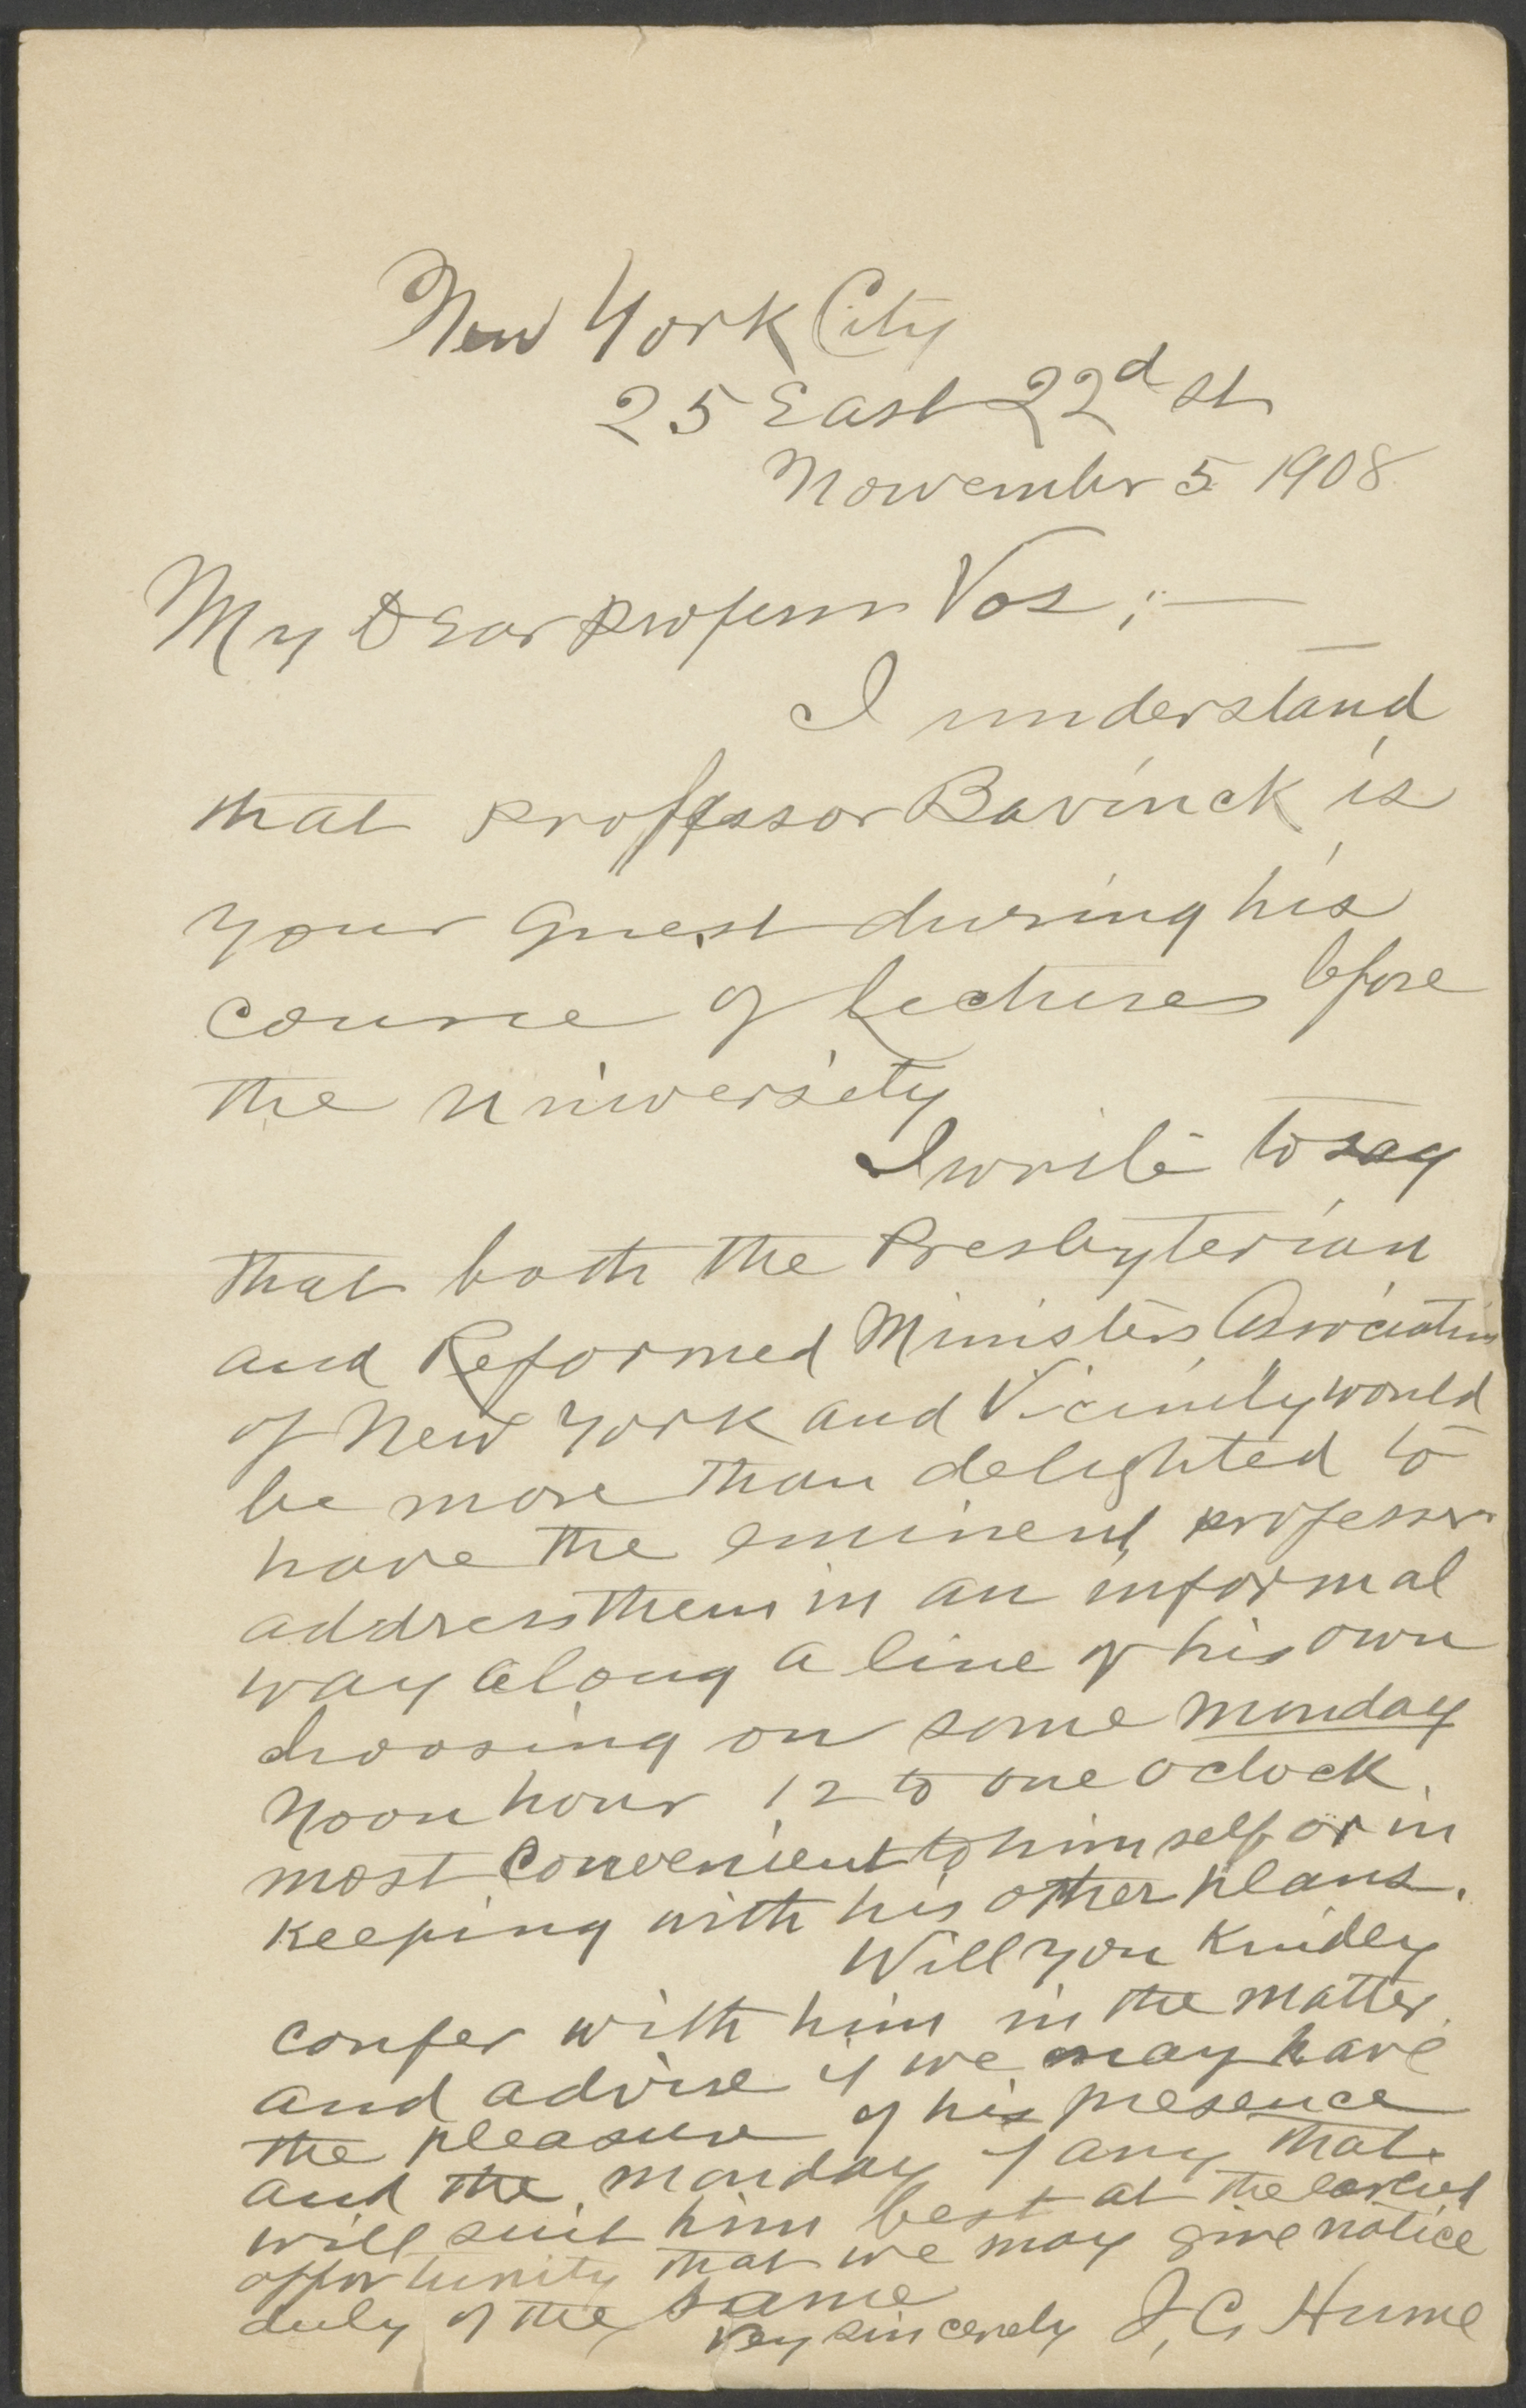 New York City
25 East 22d St
November 5 1908
My Dear Professor Vos;—
I understand
that Professor Bavinck is
your guest during his
course of lectures before
the University
I write to say
that both the Presbyterian
and Reformed Ministers Association
of New York and Vicinity would
be more than delighted to
have the eminent professor
address them in an informal
way along a line of his own
choosing on some Monday
noon hour 12 to one oclock.
most convenient to himself or in
keeping with his other plans.
Will you kindly
confer with him in the matter
and advise if we may have
the pleasure of his presence
and the Monday if any that
will suit him best at the earliest
opportunity that we may give notice
duly of the same
Very sincerely J. C. Hume